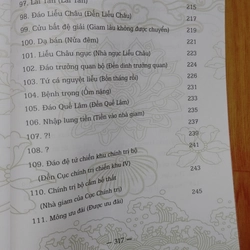 97. Lai Tân (Lai Tân) 215
98. Đáo Liễu Châu (Đến Liễu Châu) 217
99. Cửu bất đệ giải (Giam lâu không được chuyển) 219
100. Dạ bán (Nửa đêm) 219
101. Liễu Châu ngục (Nhà ngục Liễu Châu) 221
102. Đáo trưởng quan bộ (Đến dinh trưởng quan) 223
103. Tứ cá nguyệt liễu (Bốn tháng rồi) 225
104. Bệnh trọng (Ốm nặng) 227
105. Đáo Quế Lâm (Đến Quế Lâm) 229
106. Nhập lung tiền (Tiền vào nhà giam) 235
107. ?! 237
108. ?! 239
109. Đáo đệ tứ chiến khu chính trị bộ
(Đến Cục chính trị chiến khu IV) 241
110. Chính trị bộ cấm bế thất
(Nhà giam của Cục Chính trị) 243
111. Mông ưu đãi (Được ưu đãi) 245
317